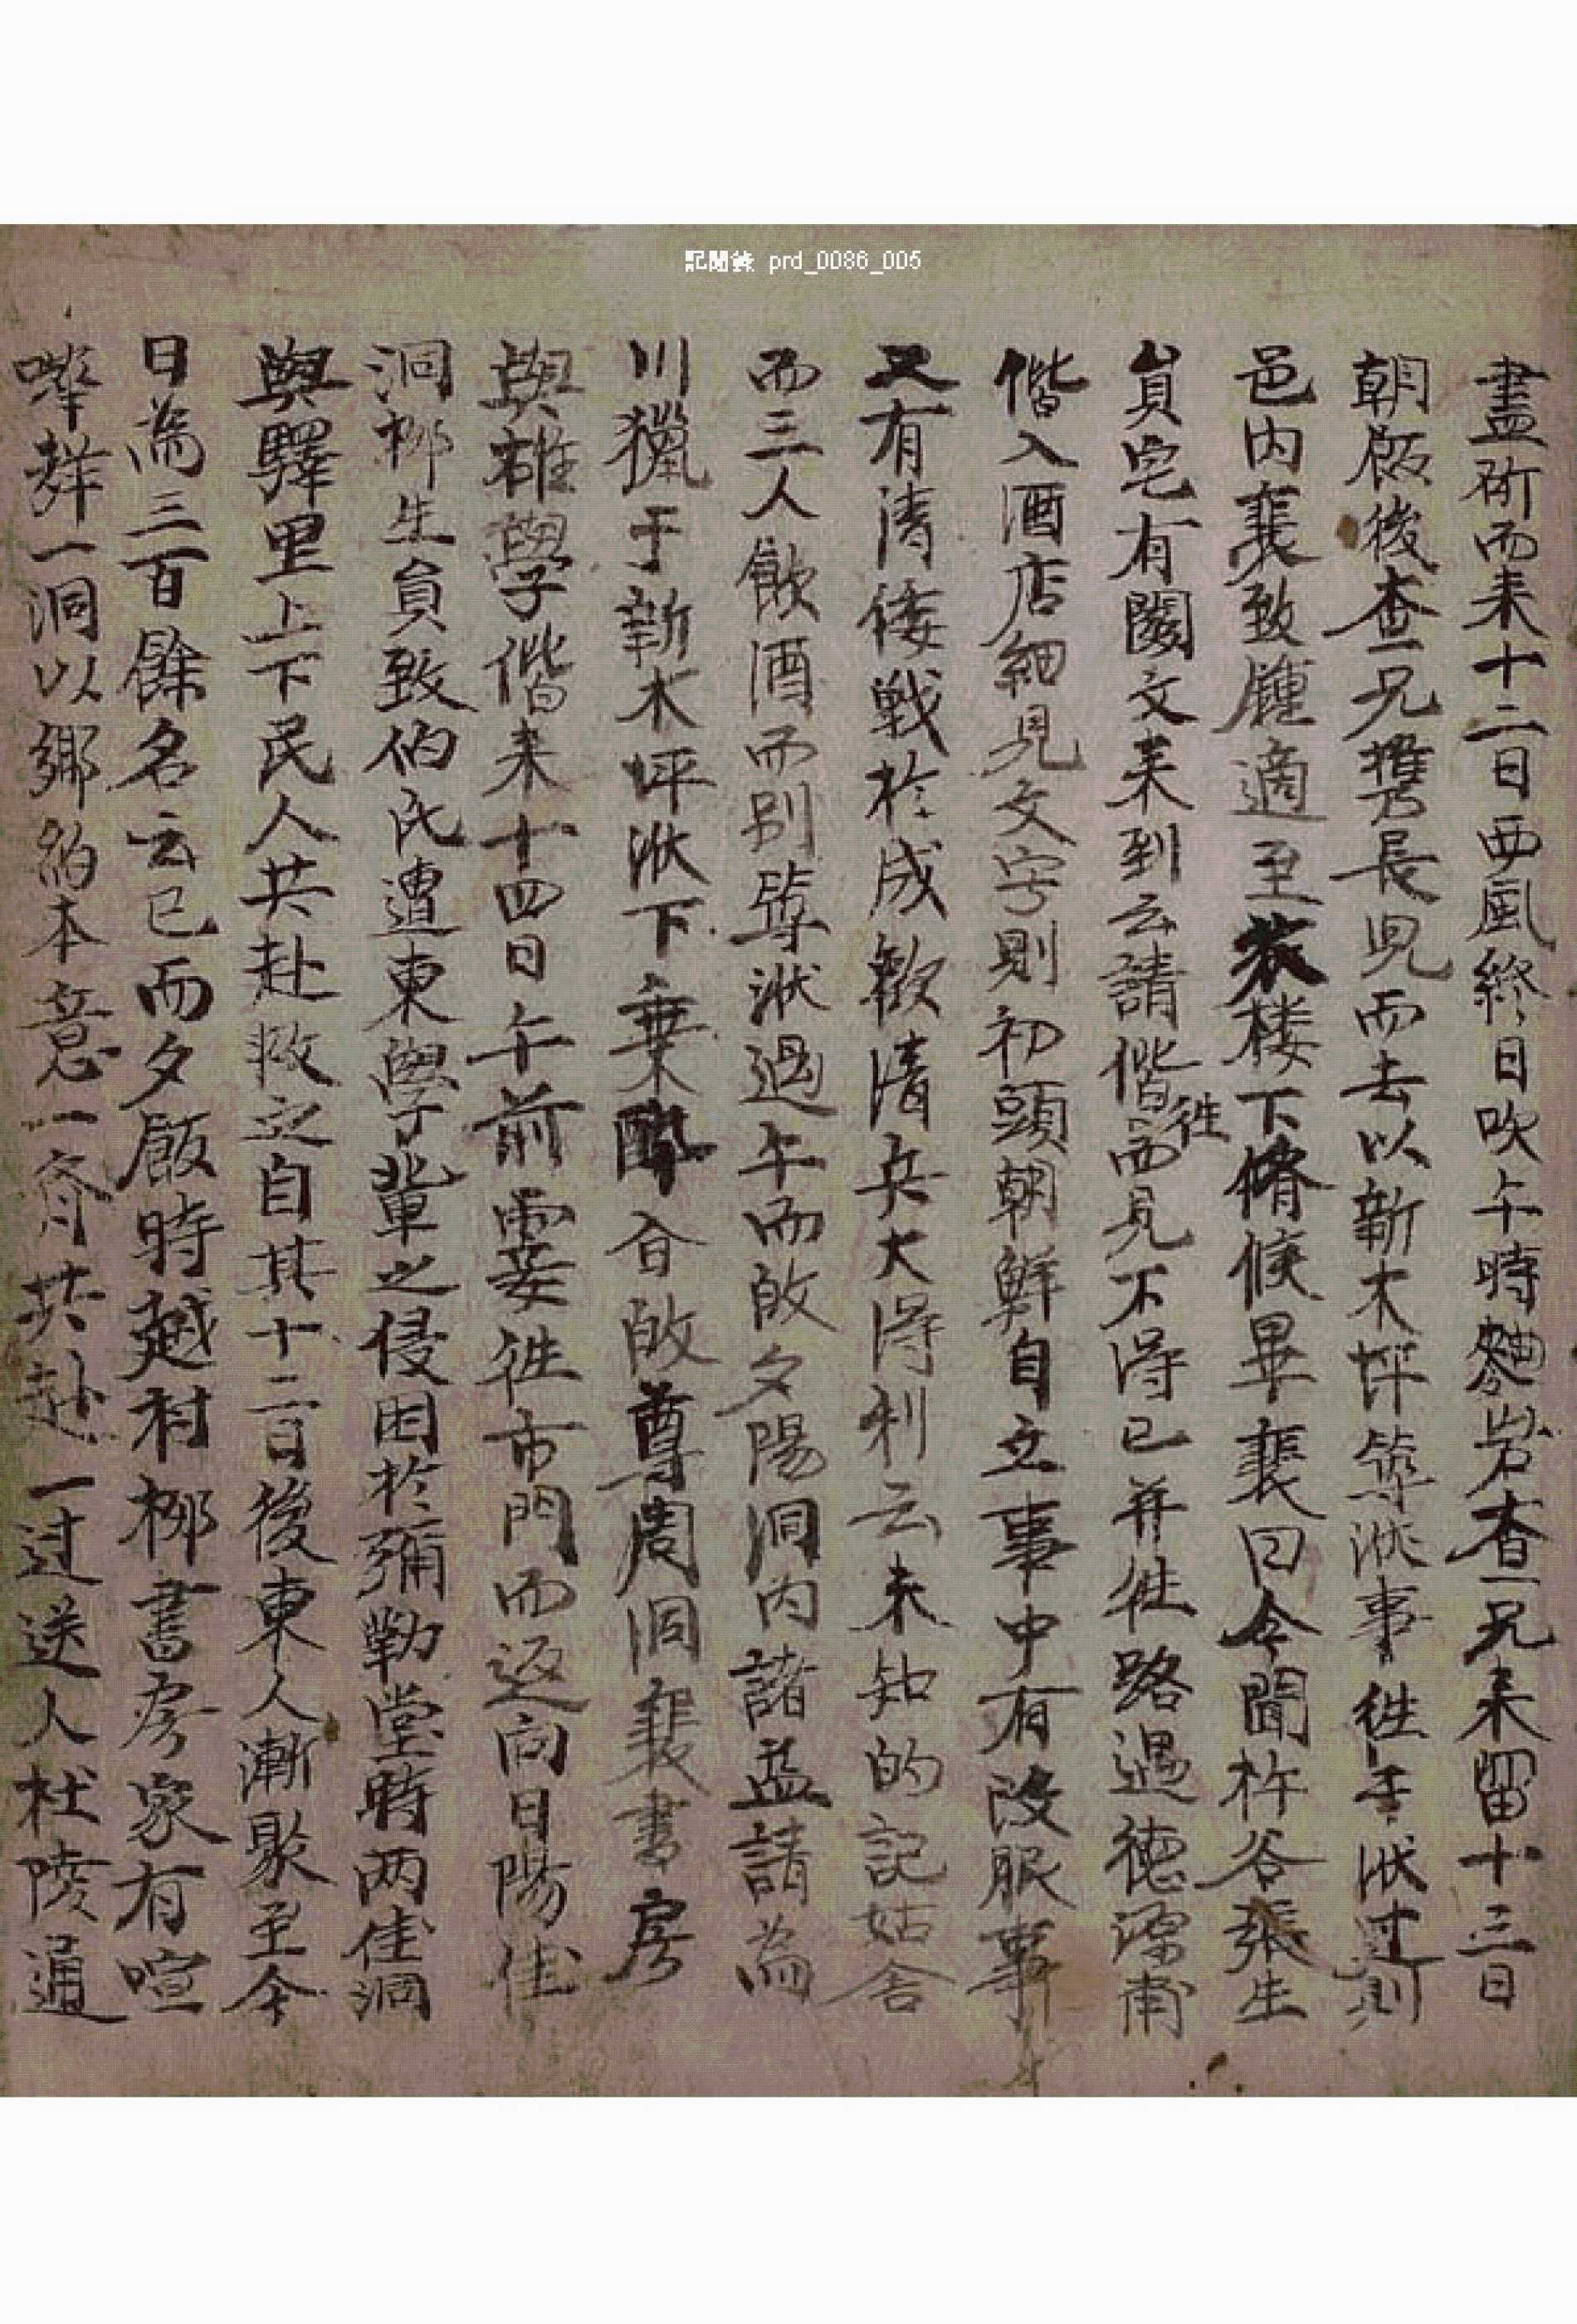 記聞錄 prd_0086_005
盡術而来十二日西風終日吹午時麯岩査兄来留十三日
朝飯後査兄携長児而去以新木坪築洑事徃于洑过則
邑内裴致鍾適至衣楼下脩候畢裴曰今聞杵谷張生
員宅有關文来到云請偕徃而見不淂已并徃路過德潭甫
偕入酒店細見文字則初頭朝鮮自立事中有改服事
又有清倭戦於成歡清兵大淂利云未知的記姑舍
而三人飲酒而别監洑過午而啟夕陽洞内諸益請為
川獵于新木坪洑下乗酔而啟尊周洞裴書房
與雄學偕来十四日午前霎徃市門而返向日陽佳
洞栁生員致伯氏遭東學軰之侵困於彌勒堂時两佳洞
與驛里上下民人共赴救之自其十二日後東人漸聚至今
日為三百餘名云已而夕飯時越村栁書房家有喧
嘩群一洞以鄉約本意一齊共赴一过送人杜陵通